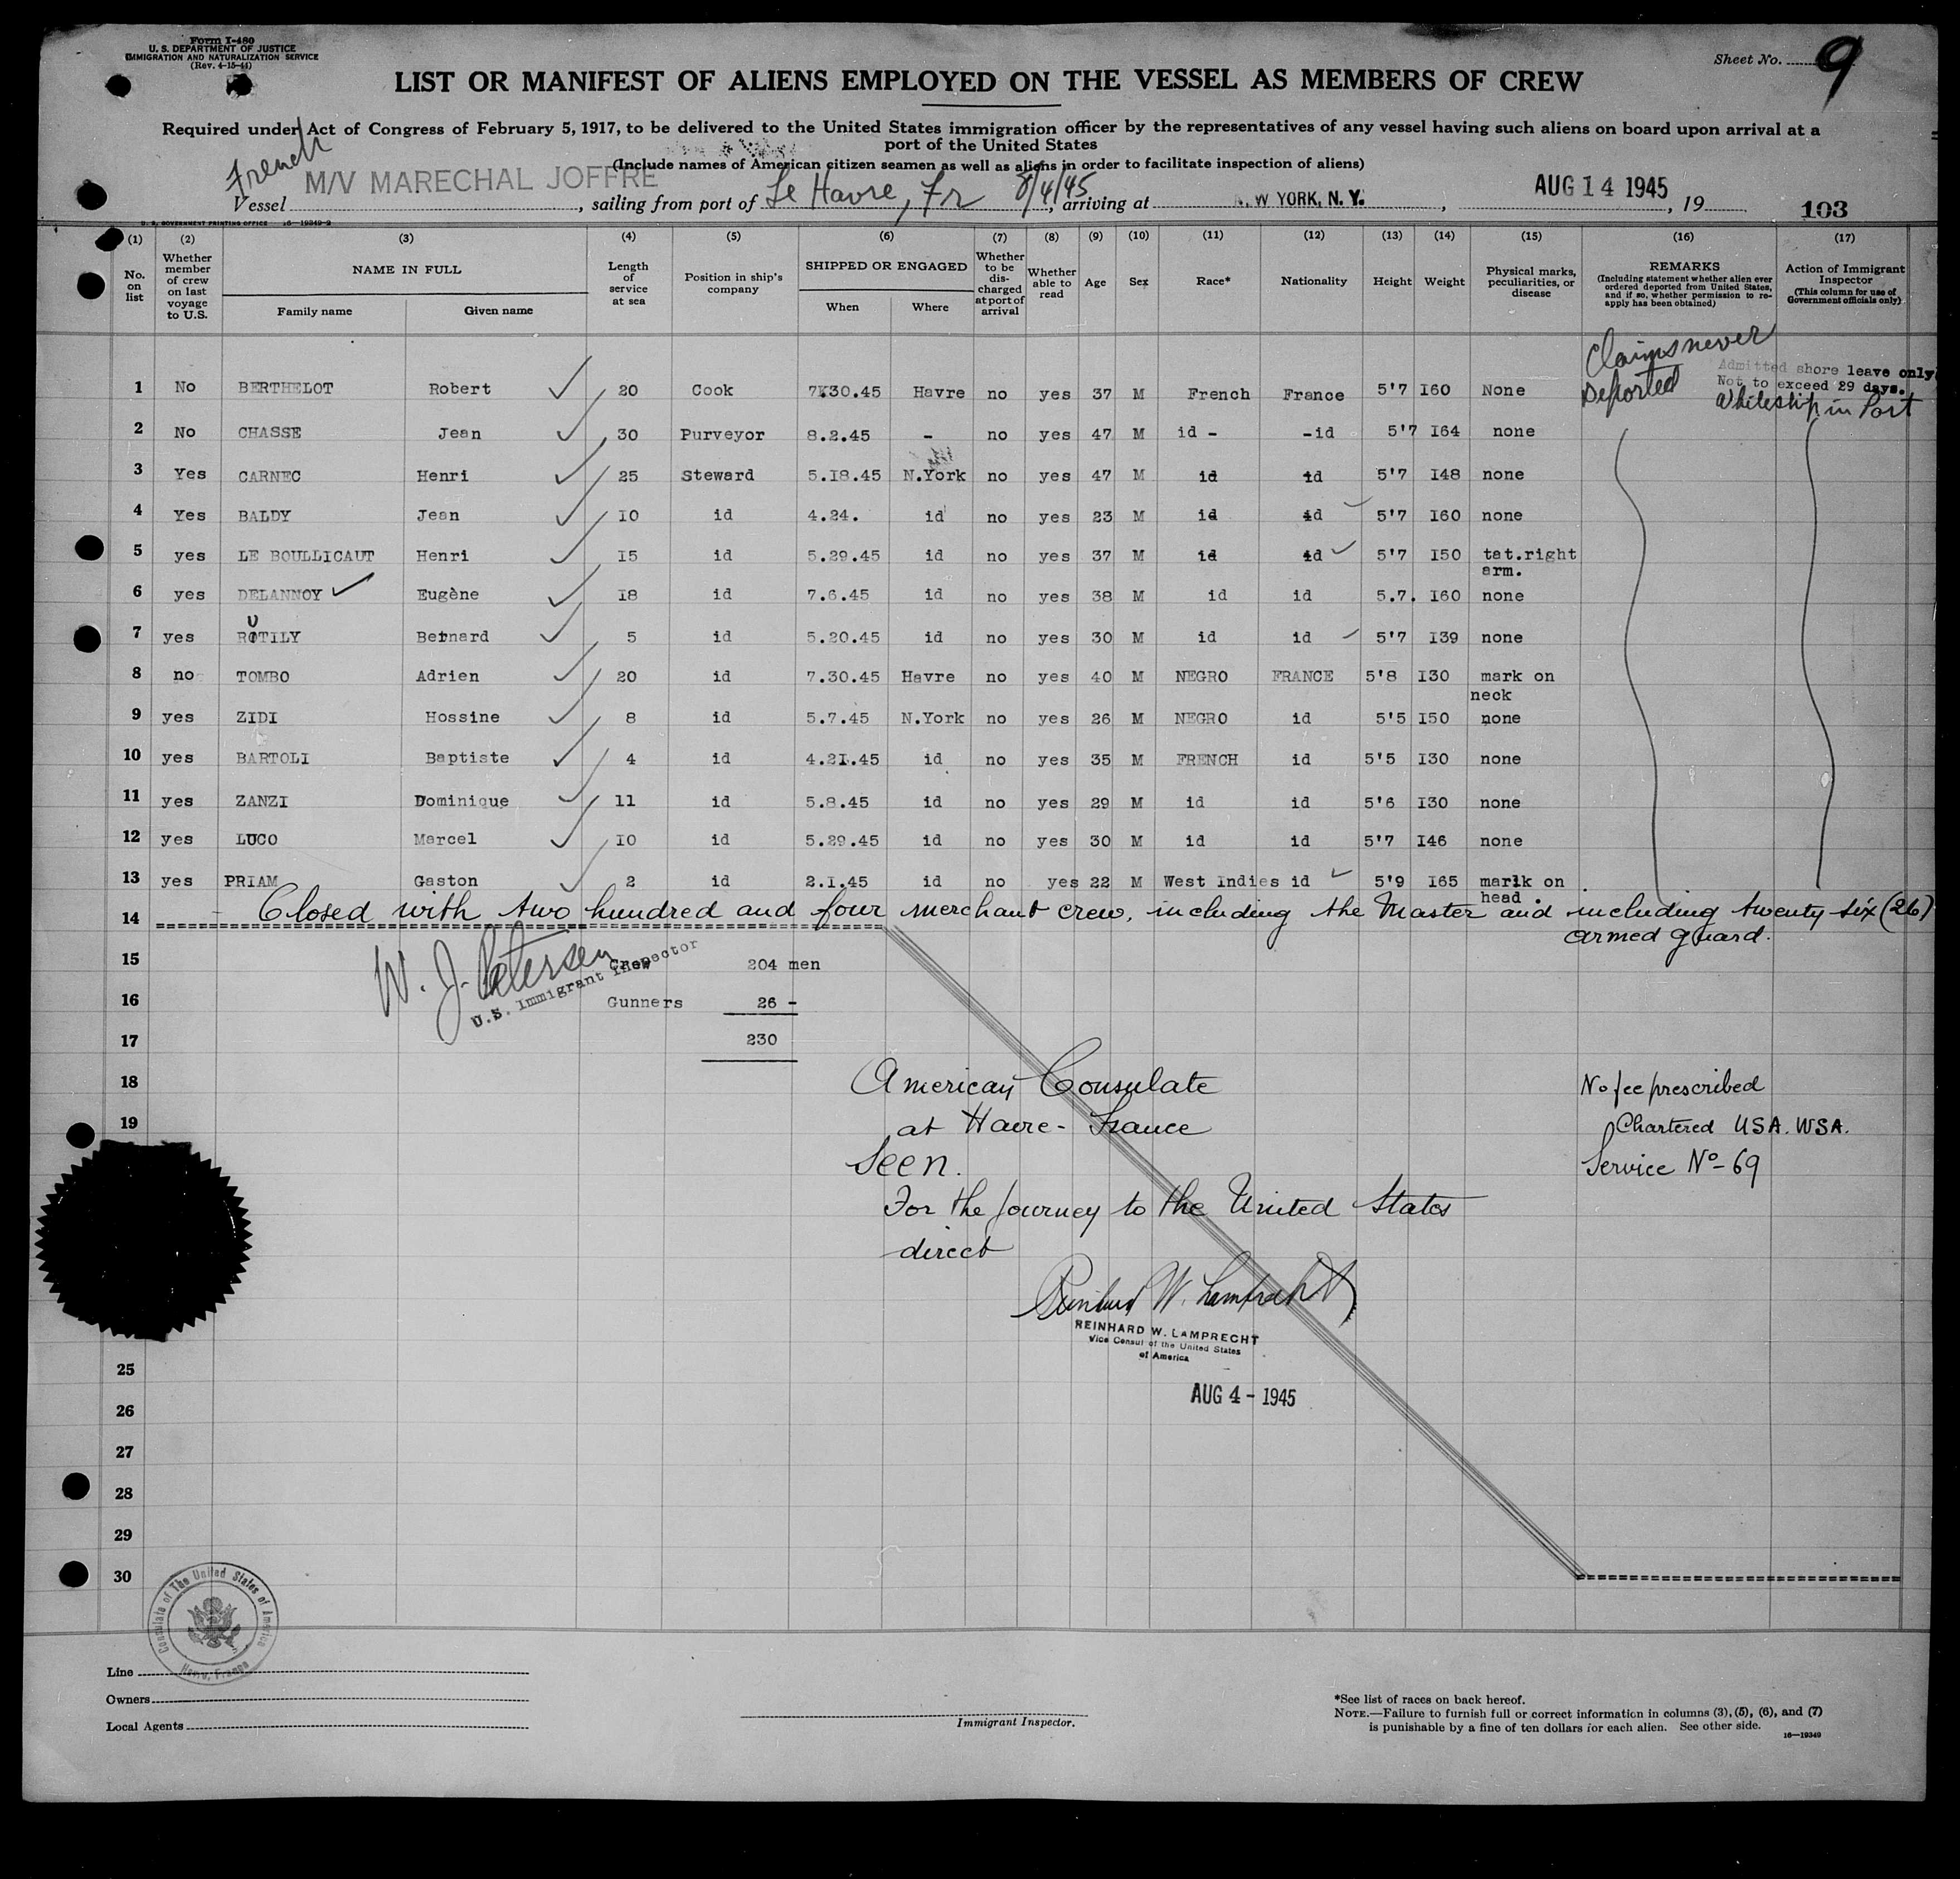 Form I-480
U. S. DEPARTMENT OF JUSTICE
IMMIGRATION AND NATURALIZATION SERVICE
(Rev. 4-15-44)
Sheet No. 9
LIST OR MANIFEST OF ALIENS EMPLOYED ON THE VESSEL AS MEMBERS OF CREW
Required under Act of Congress of February 5, 1917, to be delivered to the United States immigration officer by the representatives of any vessel having such aliens on board upon arrival at a
port of the United States
(Include names of American citizen seamen as well as aliens in order to facilitate inspection of aliens)
French
Vessel M/V MARECHAL JOFFRE, sailing from port of Le Havre, Fr 8/4/45, arriving at W YORK, N. Y., AUG 14 1945, 19
103
U. S. GOVERNMENT PRINTING OFFICE 16-19349-2
(1) (2) (3) (4) (5) (6) (7) (8) (9) (10) (11) (12) (13) (14) (15) (16) (17)
No. on list
Whether member of crew on last voyage to U.S.
NAME IN FULL
Family name Given name
Length of service at sea
Position in ship's company
SHIPPED OR ENGAGED
When Where
Whether to be discharged at port of arrival
Whether able to read
Age Sex Race* Nationality Height Weight
Physical marks, peculiarities, or disease
REMARKS
(Including statement whether alien ever ordered deported from United States, and if so, whether permission to reapply has been obtained)
Action of Immigrant Inspector
(This column for use of Government officials only)
Claims never
Deported
Admitted shore leave only
Not to exceed 29 days.
While ship in Port
1 No BERTHELOT Robert 20 Cook 7.30.45 Havre no yes 37 M French France 5'7 I60 None
2 No CHASSE Jean 30 Purveyor 8.2.45 - no yes 47 M id - -id 5'7 I64 none
3 Yes CARNEC Henri 25 Steward 5.I8.45 N.York no yes 47 M id id 5'7 I48 none
4 Yes BALDY Jean I0 id 4.24. id no yes 23 M id id 5'7 I60 none
5 yes LE BOULLICAUT Henri I5 id 5.29.45 id no yes 37 M id id 5'7 I50 tat.right
arm.
6 yes DELANNOY Eugène I8 id 7.6.45 id no yes 38 M id id 5.7. I60 none
7 yes RUTILY Bernard 5 id 5.20.45 id no yes 30 M id id 5'7 I39 none
8 no TOMBO Adrien 20 id 7.30.45 Havre no yes 40 M NEGRO FRANCE 5'8 I30 mark on
neck
9 yes ZIDI Hossine 8 id 5.7.45 N.York no yes 26 M NEGRO id 5'5 I50 none
10 yes BARTOLI Baptiste 4 id 4.2I.45 id no yes 35 M FRENCH id 5'5 I30 none
11 yes ZANZI Dominique 11 id 5.8.45 id no yes 29 M id id 5'6 I30 none
12 yes LUCO Marcel I0 id 5.29.45 id no yes 30 M id id 5'7 I46 none
13 yes PRIAM Gaston 2 id 2.I.45 id no yes 22 M West Indies id 5'9 I65 mark on
head .
14 Closed with two hundred and four merchant crew, including the Master and including twenty six (26)
armed guard.
W. J. Petersen
U.S. Immigrant Inspector
15 Crew 204 men
16 Gunners 26 -
17 230
18 American Consulate No fee prescribed
19 at Havre - France Chartered USA. WSA.
Seen. Service No- 69
For the Journey to the United States
direct
Reinhard W. Lamprecht
REINHARD W. LAMPRECHT
Vice Consul of the United States
of America
AUG 4 - 1945
25
26
27
28
29
30
Consulate of The United States of America
Havre, France
Line
Owners
Local Agents
Immigrant Inspector.
*See list of races on back hereof.
NOTE.—Failure to furnish full or correct information in columns (3), (5), (6), and (7)
is punishable by a fine of ten dollars for each alien. See other side.
16—19349